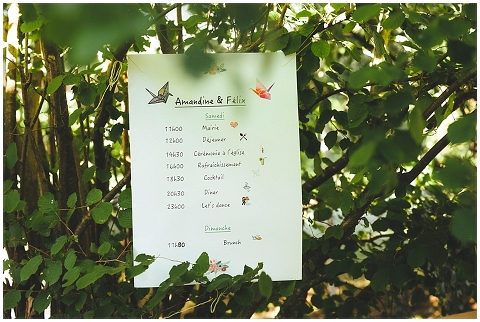 Amandine & Félix
Samedi
11h00 Mairie
12h00 Déjeuner
14h30 Cérémonie à l'église
16h00 Rafraîchissement
18h30 Cocktail
20h30 Dîner
23h00 Let's dance
Dimanche
11h00 Brunch